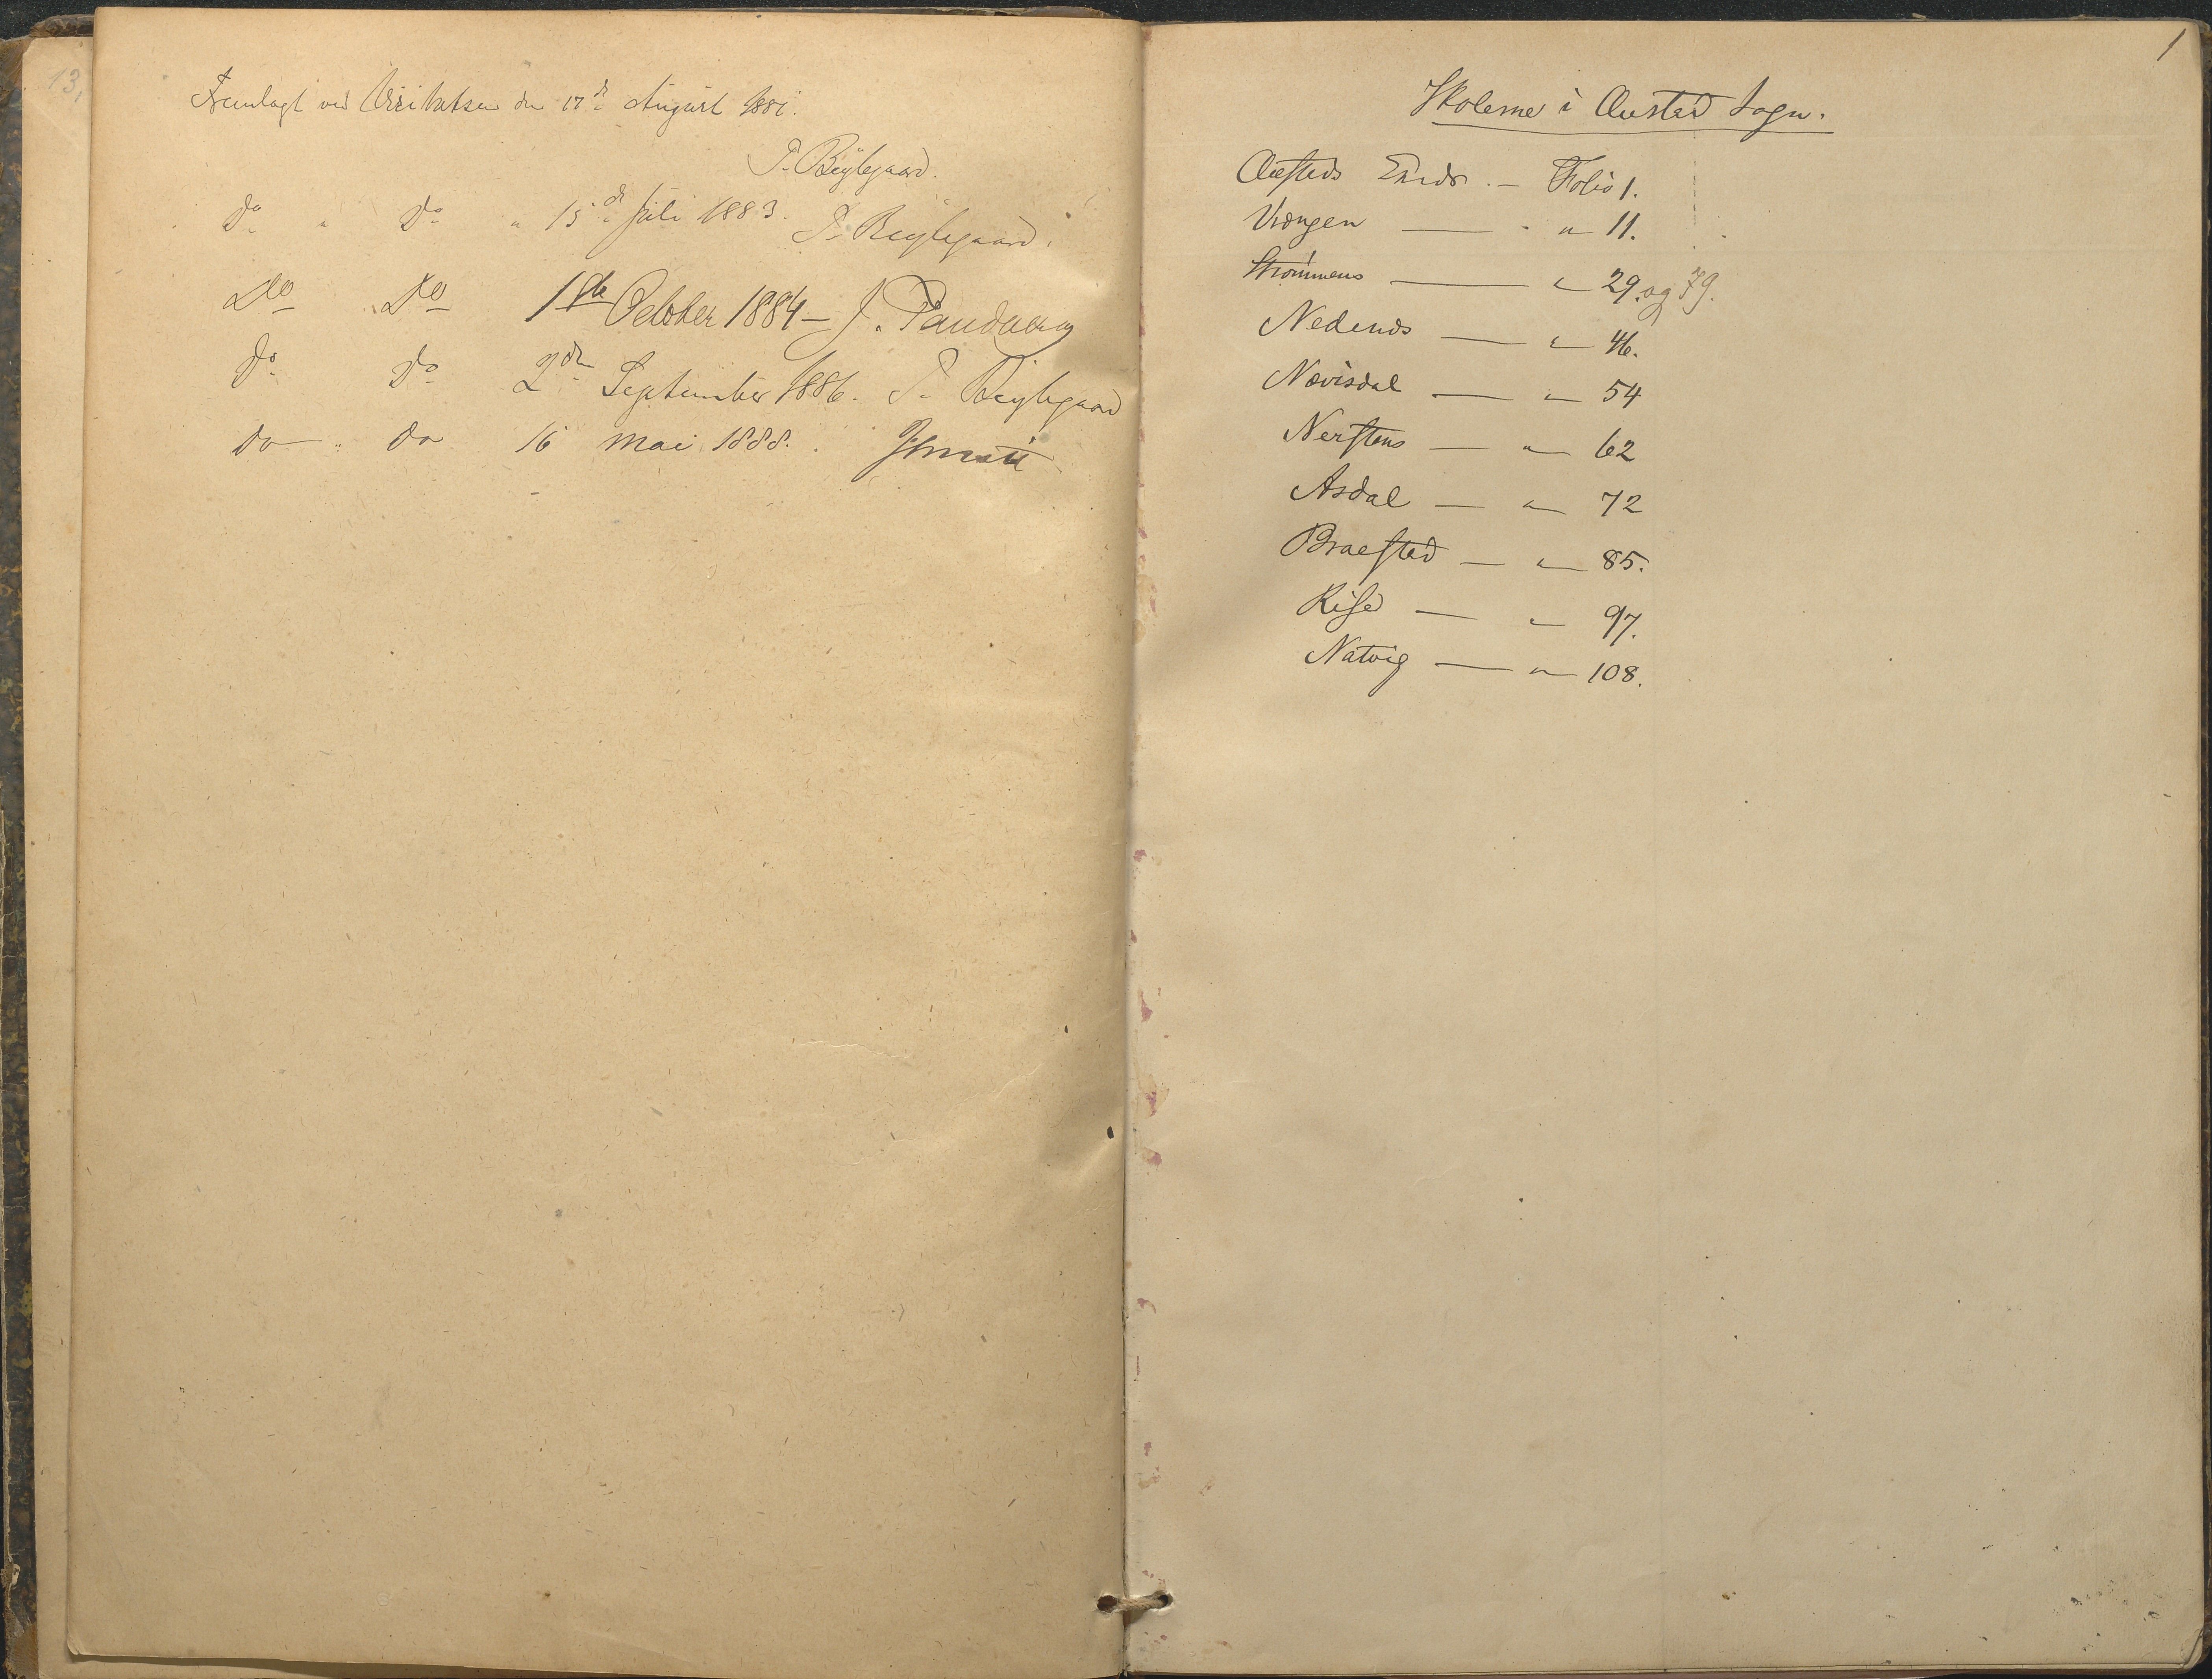 13,
Fremlagt ved Visitatsen den 17de August 1881.
P. Bøylegaard.
Do " Do " 15de Juli 1883. P. Bøylegaard.
Do Do 1ste October 1884 – J.
Do Do 2den September 1886. P. Bøylegaard
do " do 16 Mai 1888.
1
Skolerne i Øiestad Sogn.
Øiestads Kreds. – Folio 1.
Vrængen — " 11.
Strømmens — " 29. og 79.
Nedenæs — " 46.
Nævisdal — " 54
Nerstens — " 62
Asdal — " 72
Braastad — " 85.
Rise — " 97.
Natvig — " 108.